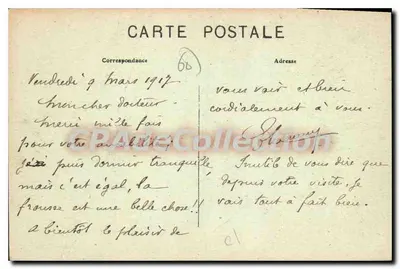 CARTE POSTALE
Correspondance
Adresse
60
Vendredi 9 mars 1917
Mon cher docteur
Merci mille fois
pour votre amabilité,
j'ai puis dormir tranquille
mais c'est égal, la
frousse est une belle chose!!
A bientôt le plaisir de
vous voir et bien
cordialement à vous.
Inutile de vous dire que
depuis votre visite, je
vais tout à fait bien.
CPA Collection